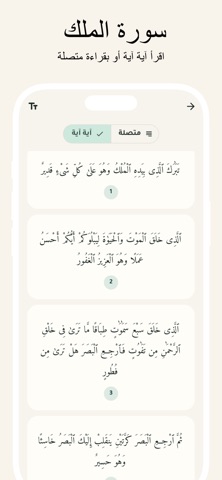 سورة الملك
اقرأ آية آية أو بقراءة متصلة
Tт
→
آية آية ✓ متصلة
تَبَٰرَكَ ٱلَّذِى بِيَدِهِ ٱلْمُلْكُ وَهُوَ عَلَىٰ كُلِّ شَىْءٍ قَدِيرٌ
1
ٱلَّذِى خَلَقَ ٱلْمَوْتَ وَٱلْحَيَوٰةَ لِيَبْلُوَكُمْ أَيُّكُمْ أَحْسَنُ
عَمَلًا وَهُوَ ٱلْعَزِيزُ ٱلْغَفُورُ
2
ٱلَّذِى خَلَقَ سَبْعَ سَمَٰوَٰتٍ طِبَاقًا مَّا تَرَىٰ فِى خَلْقِ
ٱلرَّحْمَٰنِ مِن تَفَٰوُتٍ فَٱرْجِعِ ٱلْبَصَرَ هَلْ تَرَىٰ مِن
فُطُورٍ
3
ثُمَّ ٱرْجِعِ ٱلْبَصَرَ كَرَّتَيْنِ يَنقَلِبْ إِلَيْكَ ٱلْبَصَرُ خَاسِئًا
وَهُوَ حَسِيرٌ